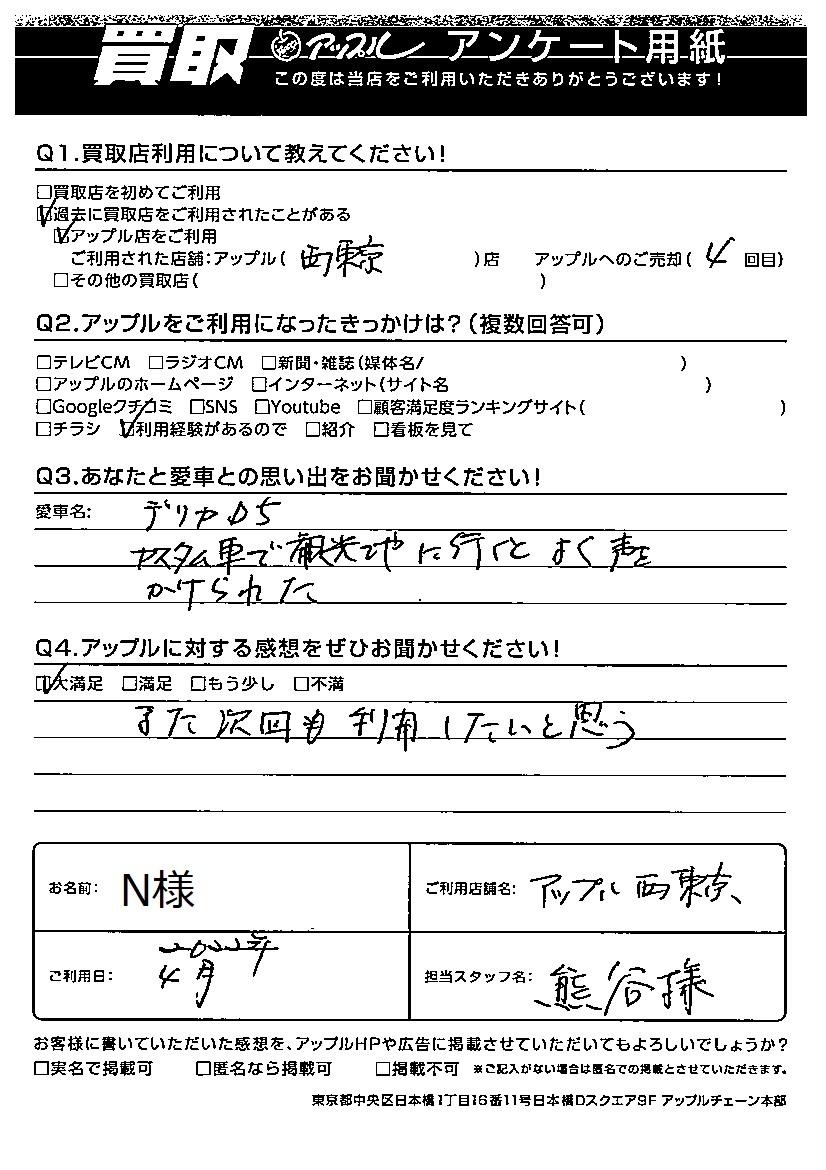 買取 アップル アンケート用紙
この度は当店をご利用いただきありがとうございます！
Q1.買取店利用について教えてください！
□買取店を初めてご利用
☑過去に買取店をご利用されたことがある
☑アップル店をご利用
ご利用された店舗：アップル（ 西東京 ）店 アップルへのご売却（ 4 回目）
□その他の買取店（ ）
Q2.アップルをご利用になったきっかけは？（複数回答可）
□テレビCM □ラジオCM □新聞・雑誌（媒体名/ ）
□アップルのホームページ □インターネット（サイト名 ）
□Googleクチコミ □SNS □Youtube □顧客満足度ランキングサイト（ ）
□チラシ ☑利用経験があるので □紹介 □看板を見て
Q3.あなたと愛車との思い出をお聞かせください！
愛車名： デリカD5
カスタム車で観光地に行くとよく声を
かけられた
Q4.アップルに対する感想をぜひお聞かせください！
☑大満足 □満足 □もう少し □不満
また次回も利用したいと思う
お名前： N様 ご利用店舗名： アップル西東京
ご利用日： 2022年4月 担当スタッフ名： 熊谷様
お客様に書いていただいた感想を、アップルHPや広告に掲載させていただいてもよろしいでしょうか？
□実名で掲載可 □匿名なら掲載可 □掲載不可 ※ご記入がない場合は匿名での掲載とさせていただきます。
東京都中央区日本橋1丁目16番11号日本橋Dスクエア9F アップルチェーン本部